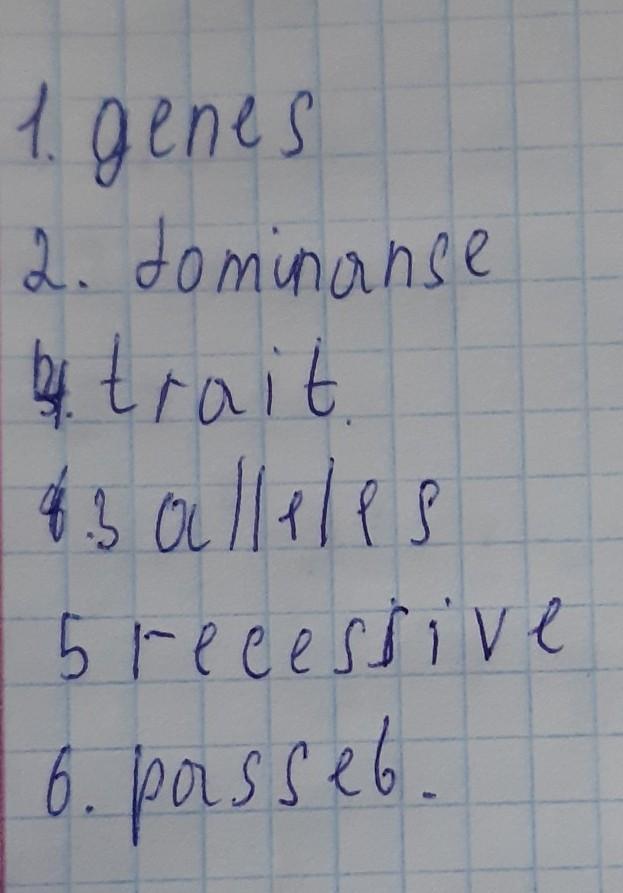 1. genes
2. dominanse
4. trait.
3 alleles
5 recessive
6. passed.